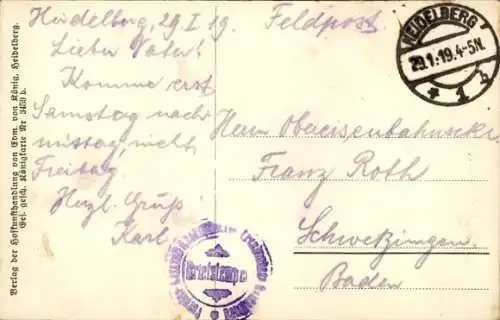 Heidelberg, 29 I 19. Feldpost.
Lieber Vater!
Komme erst
Samstag nach-
mittag, nicht
Freitag.
Herzl. Gruß
Karl.
Herrn Obereisenbahnsekr.
Franz Roth
Schwetzingen
Baden
HEIDELBERG
29.1.19.4-5N.
* 1 b
Briefstempel
Verlag der Hofkunsthandlung von Edm. von König, Heidelberg.
Ges. gesch. Königkarte Nr